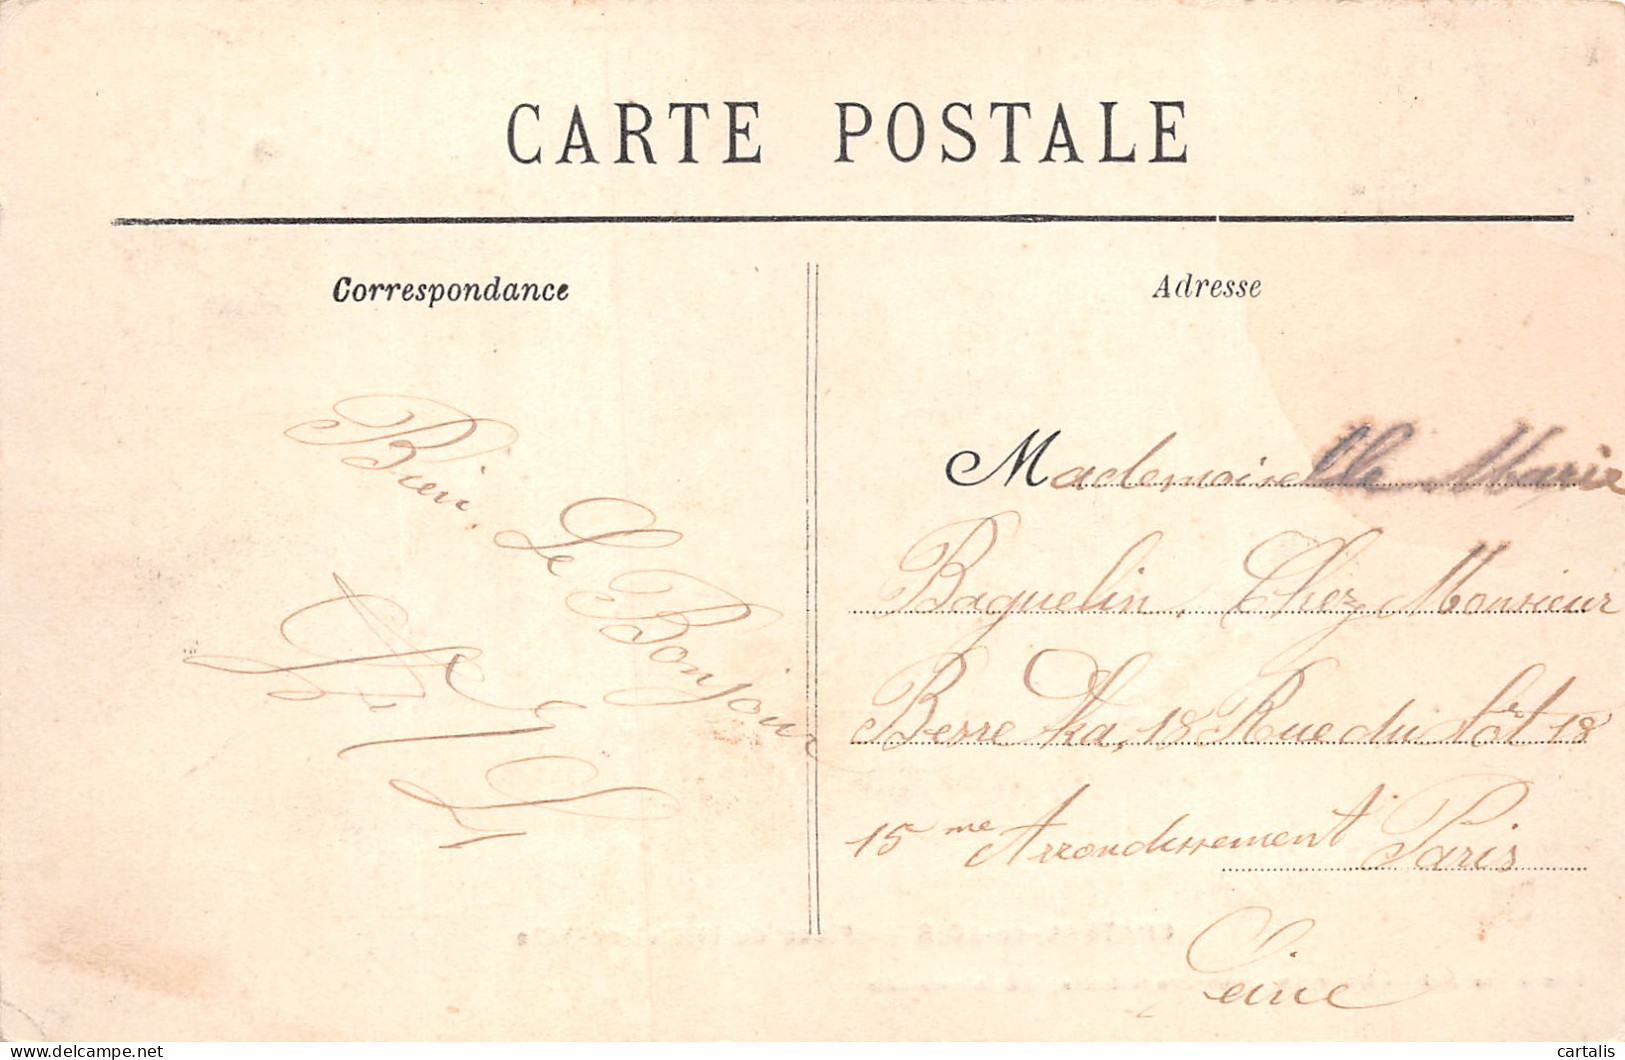 CARTE POSTALE
Correspondance
Bien Le Bonjour
Adresse
Mademoiselle Marie
Baquelin, Chez Monsieur
18 Rue du 18
15me Arrondissement Paris
Seine
delcampe.net
cartalis